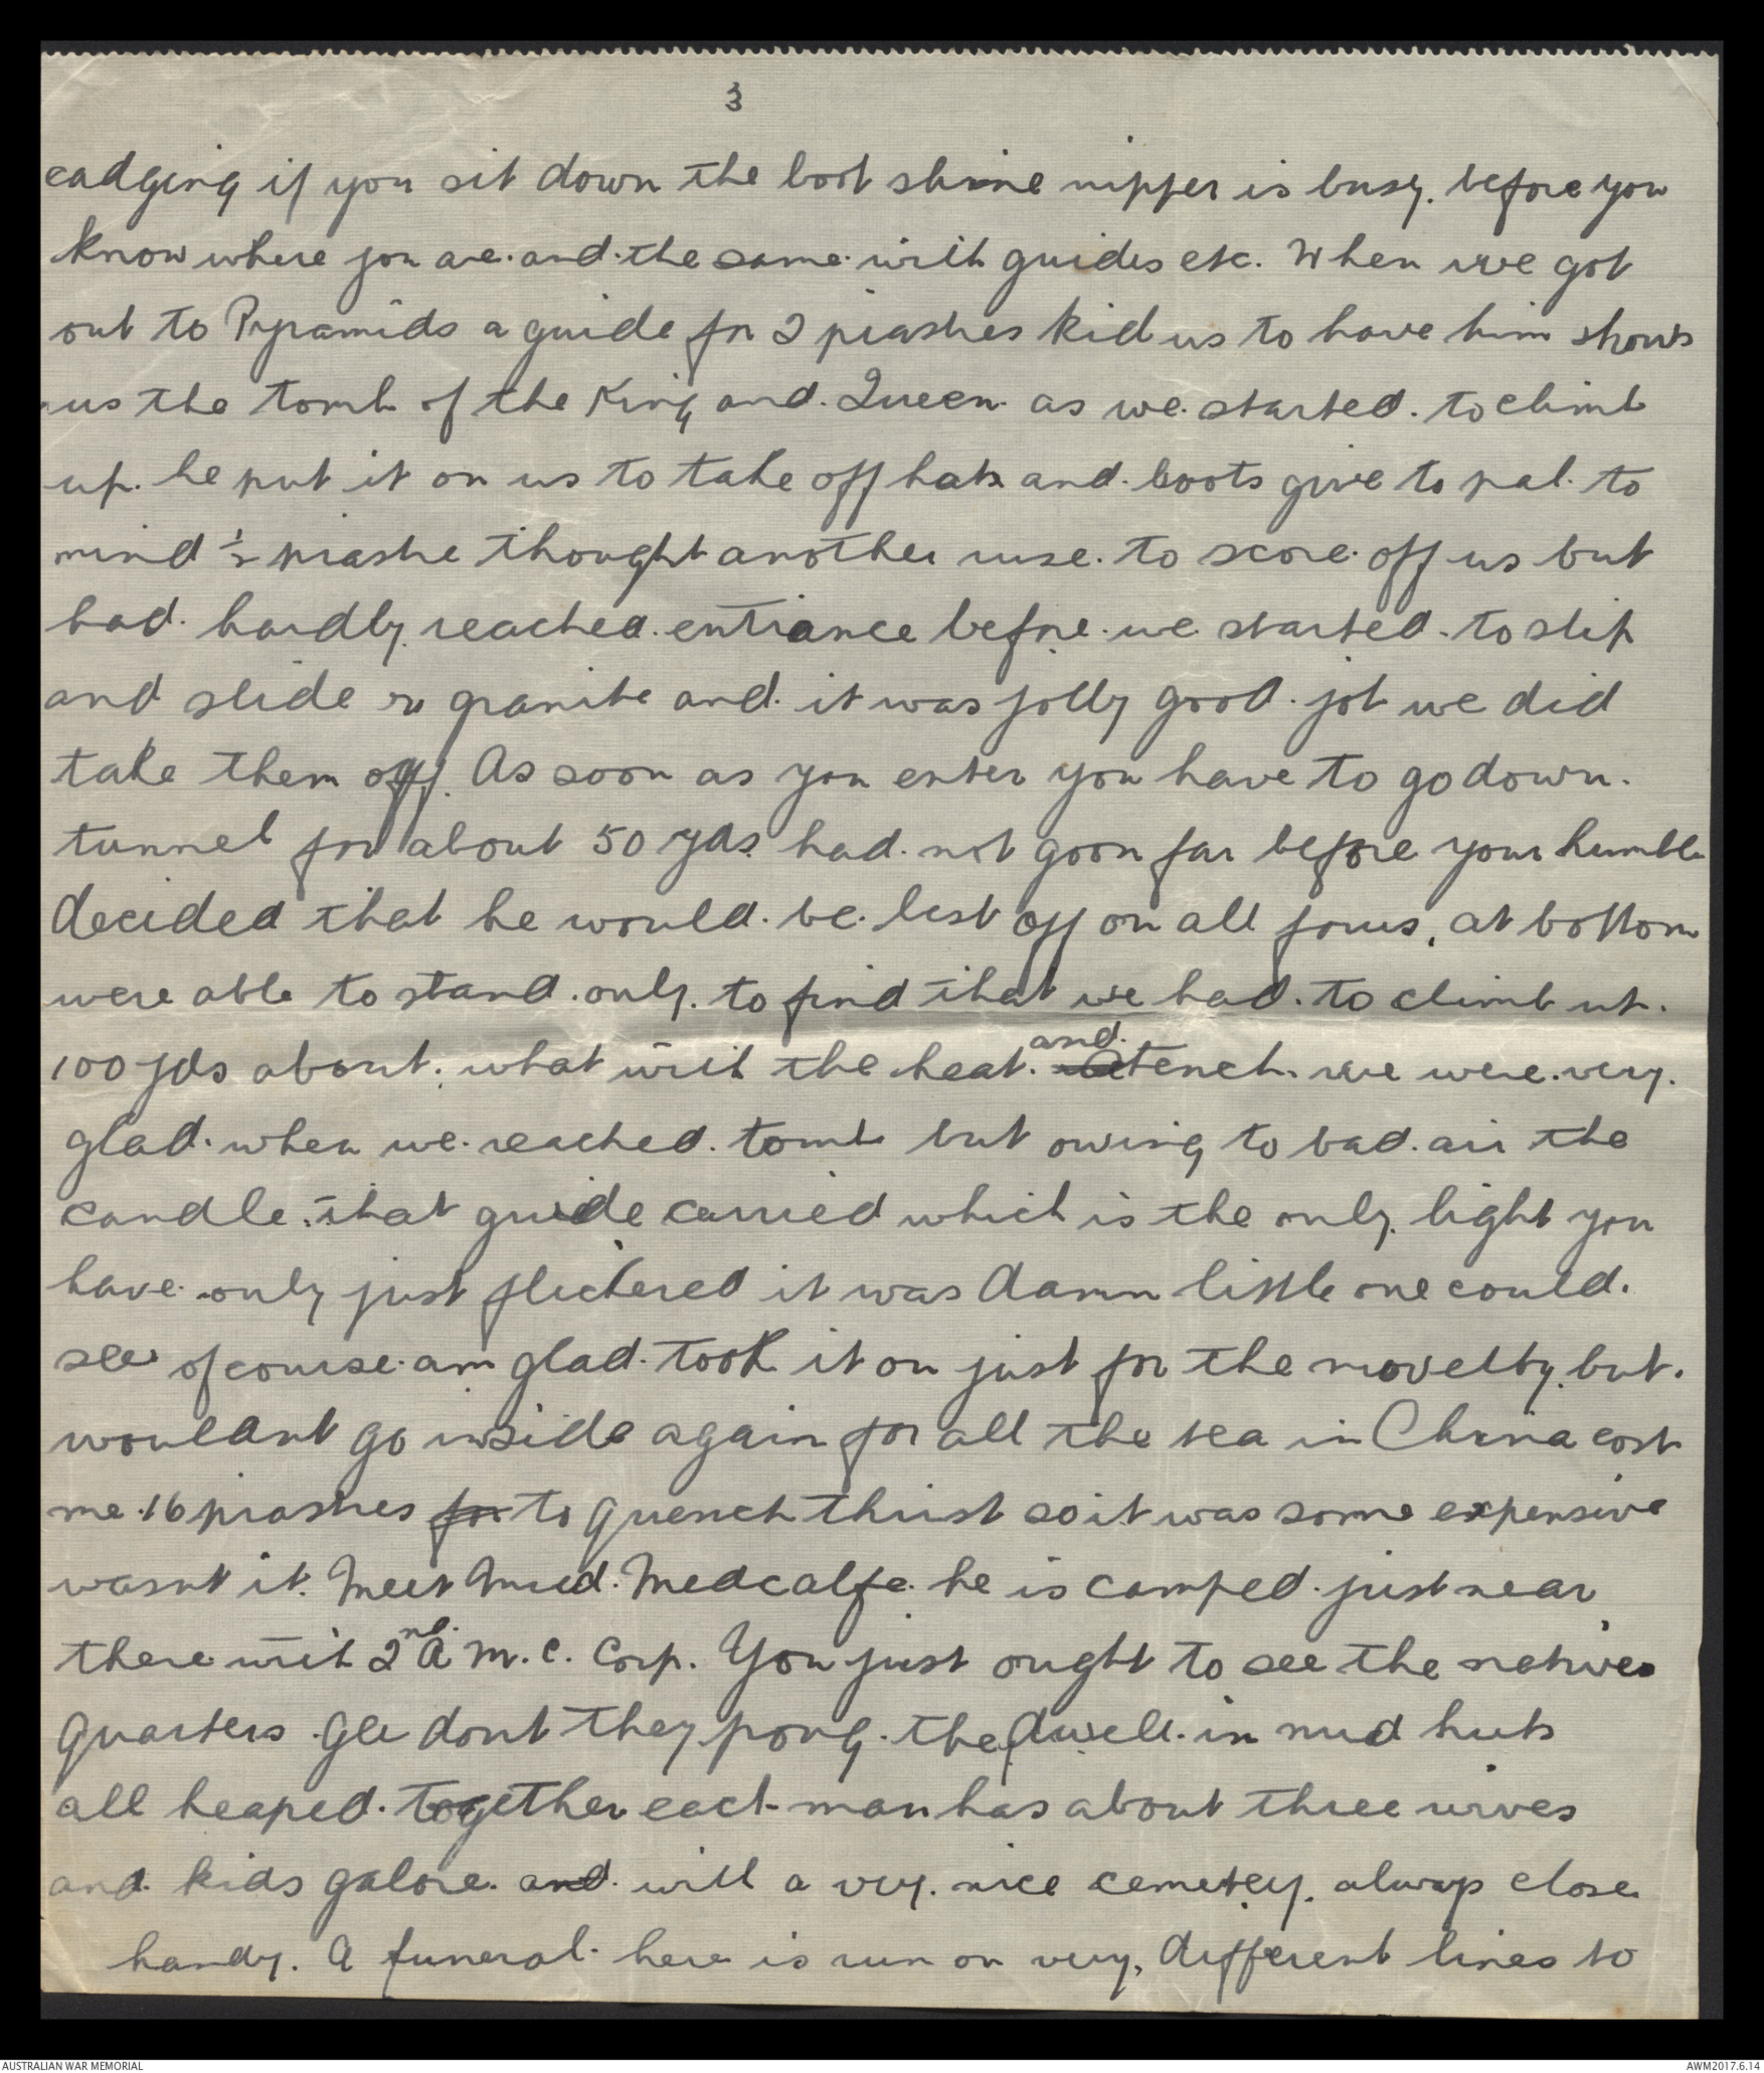 3
cadging if you sit down the boot shine nipper is busy. before you
know where you are. and. the same. with guides etc. When we got
out to Pyramids a guide for 2 piashes kid us to have him shows
us the tomb of the King and. Queen. as we. started. to climb
up. he put it on us to take off hats and. boots give to pal. to
mind ½ piashe thought another ruse. to score. off us but
had. hardly reached. entrance before. we started. to slip
and slide granite and. it was jolly good. job we did
take them off. As soon as you enter you have to go down.
tunnel for about 50 yds had. not goon far before your humble
decided that he would. be. best off on all fours, at bottom
were able to stand. only. to find that we had. to climb up.
100 yds about. what with the heat. and. stench. we were. very.
glad. when we. reached. tomb but owing to bad. air the
candle. that guide carried which is the only. light you
have. only just flickered it was damn little one could.
see of course. am glad. took it on just for the novelty. but.
wouldant go inside again for all the tea in China cost
me. 16 piashes for to quench thirst so it was some expensive
wasnt it. Meet Medcalfe. he is camped. just near
there with 2nd. A. M. C. Corp. You just ought to see the natives
quarters. Gee dont they pong. they dwell. in mud huts
all heaped. together each man has about three wives
and. kids galore. and. with a very. nice cemetery. always close
handy. A funeral. here is run on very, different lines to
AUSTRALIAN WAR MEMORIAL
AWM2017.6.14